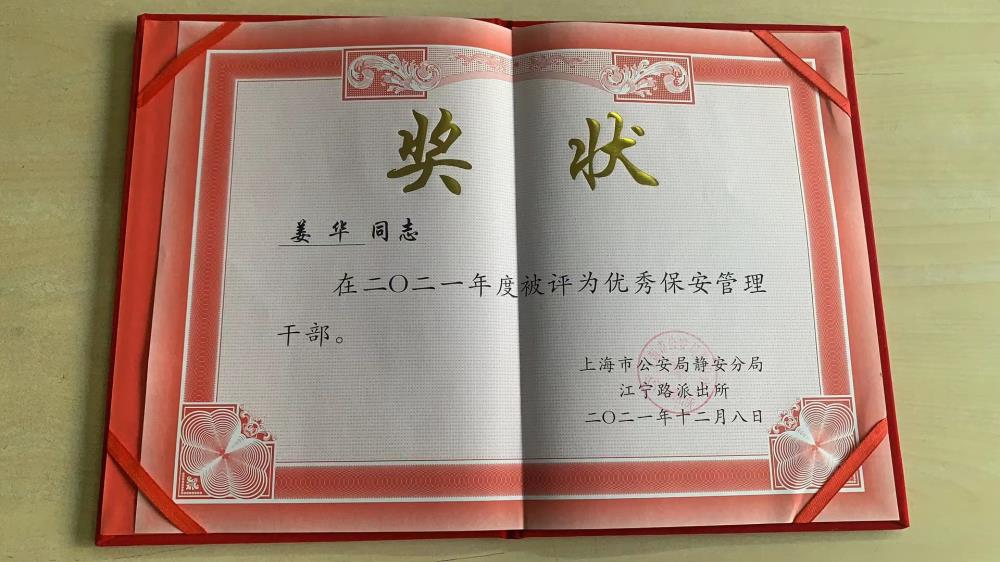 奖状
姜华同志
在二〇二一年度被评为优秀保安管理
干部。
上海市公安局静安分局
江宁路派出所
二〇二一年十二月八日